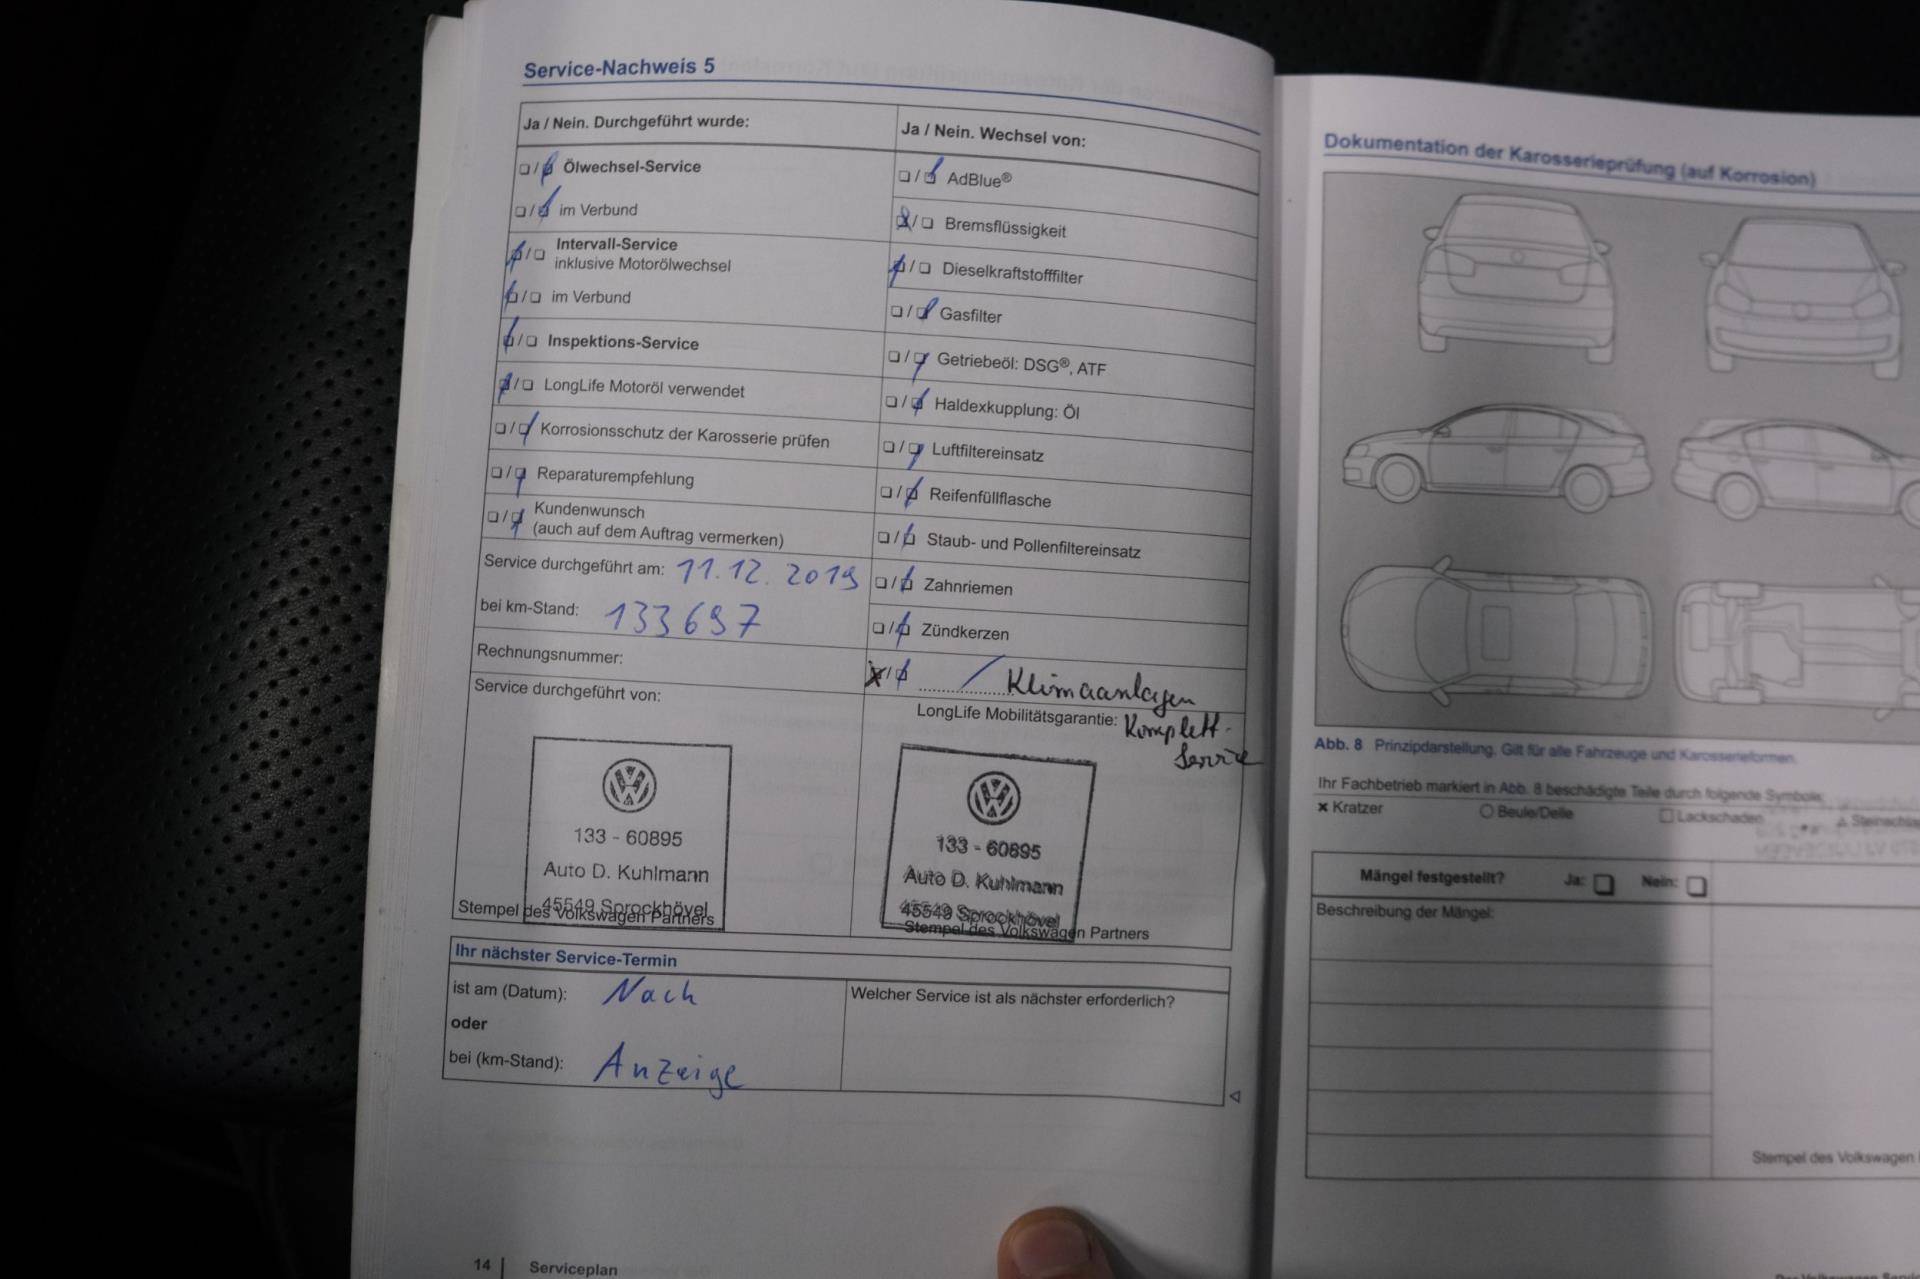 Service-Nachweis 5
Ja / Nein. Durchgeführt wurde:
Ölwechsel-Service
im Verbund
Intervall-Service
inklusive Motorölwechsel
im Verbund
Inspektions-Service
LongLife Motoröl verwendet
Korrosionsschutz der Karosserie prüfen
Reparaturempfehlung
Kundenwunsch
(auch auf dem Auftrag vermerken)
Service durchgeführt am: 11.12.2019
bei km-Stand: 133697
Rechnungsnummer:
Service durchgeführt von:
133 - 60895
Auto D. Kuhlmann
45549 Sprockhövel
Stempel des Volkswagen Partners
Ja / Nein. Wechsel von:
AdBlue®
Bremsflüssigkeit
Dieselkraftstofffilter
Gasfilter
Getriebeöl: DSG®, ATF
Haldexkupplung: Öl
Luftfiltereinsatz
Reifenfüllflasche
Staub- und Pollenfiltereinsatz
Zahnriemen
Zündkerzen
Klimaanlagen
LongLife Mobilitätsgarantie: Komplett-
Service
133 - 60895
Auto D. Kuhlmann
45549 Sprockhövel
Stempel des Volkswagen Partners
Ihr nächster Service-Termin
ist am (Datum): Nach
oder
bei (km-Stand): Anzeige
Welcher Service ist als nächster erforderlich?
14 | Serviceplan
Dokumentation der Karosserieprüfung (auf Korrosion)
Abb. 8 Prinzipdarstellung. Gilt für alle Fahrzeuge und Karosserieformen.
Ihr Fachbetrieb markiert in Abb. 8 beschädigte Teile durch folgende Symbole:
× Kratzer
Beule/Delle
Lackschaden
Mängel festgestellt? Ja: Nein:
Beschreibung der Mängel:
Stempel des Volkswagen